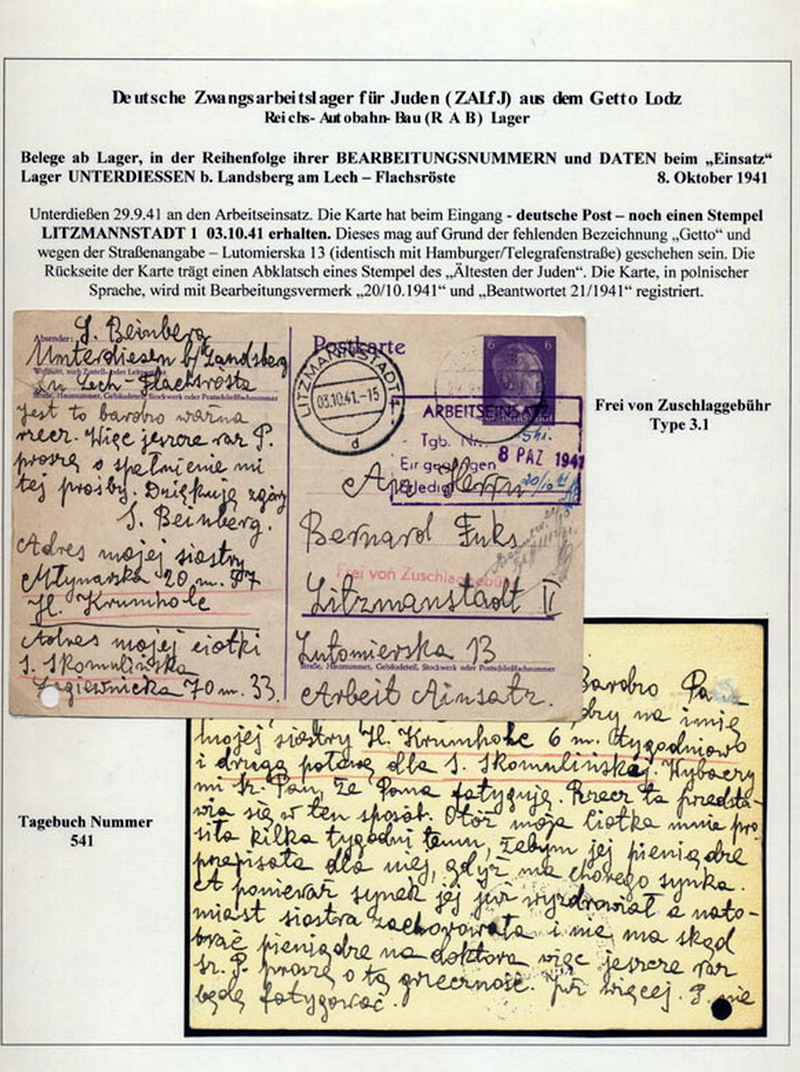 Deutsche Zwangsarbeitslager für Juden (ZALfJ) aus dem Getto Lodz
Reichs-Autobahn-Bau (R A B) Lager
Belege ab Lager, in der Reihenfolge ihrer BEARBEITUNGSNUMMERN und DATEN beim „Einsatz“
Lager UNTERDIESSEN b. Landsberg am Lech – Flachsröste 8. Oktober 1941
Unterdießen 29.9.41 an den Arbeitseinsatz. Die Karte hat beim Eingang - deutsche Post – noch einen Stempel
LITZMANNSTADT 1 03.10.41 erhalten. Dieses mag auf Grund der fehlenden Bezeichnung „Getto“ und
wegen der Straßenangabe – Lutomierska 13 (identisch mit Hamburger/Telegrafenstraße) geschehen sein. Die
Rückseite der Karte trägt einen Abklatsch eines Stempel des „Ältesten der Juden“. Die Karte, in polnischer
Sprache, wird mit Bearbeitungsvermerk „20/10.1941“ und „Beantwortet 21/1941“ registriert.
Absender: S. Beinberg
Unterdiesen b/Landsberg
Lech-Flachsrösta
Straße, Hausnummer, Gebäudeteil, Stockwerk oder Postschließfachnummer
Jest to bardzo ważna
rzecz. Więc jeszcze raz P.
proszę o spełnienie mi
tej prośby. Dziękuję zgóry
S. Beinberg.
Adres mojej siostry
Młynarska 20 m. 57
H. Krumholc
Adres mojej ciotki
S. Skomulińska
Łagiewnicka 70 m. 33.
Postkarte
6 6
LITZMANNSTADT 1
03.10.41.-15
d
ARBEITSEINSATZ
Tgb. Nr. 541.
Eingegangen 8 PAZ 1941
Erledigt 20/10 41
An Herrn
Bernard Fuks
Frei von Zuschlaggebühr
Litzmanstadt II
Lutomierska 13
Straße, Hausnummer, Gebäudeteil, Stockwerk oder Postschließfachnummer
Arbeit Ainsatz.
Frei von Zuschlaggebühr
Type 3.1
Tagebuch Nummer
541
Bardzo Pa
na imię
mojej siostry H. Krumholc 6 m. tygodniowo
i drugą połowę dla S. Skomulińskiej. Wybaczy
mi Sz. Pan, że Pana fatyguję. Rzecz ta przedsta-
wia się w ten sposób. Otóż moja ciotka mnie pro
siła kilka tygodni temu, żebym jej pieniądze
przepisała dla niej, gdyż ma chorego synka.
A ponieważ synek jej już wyzdrowiał a nato-
miast siostra zachorowała i nie ma skąd
brać pieniądze na doktora więc jeszcze raz
Sz. P. proszę o tą grzeczność. Już więcej P. nie
będę fatygować.